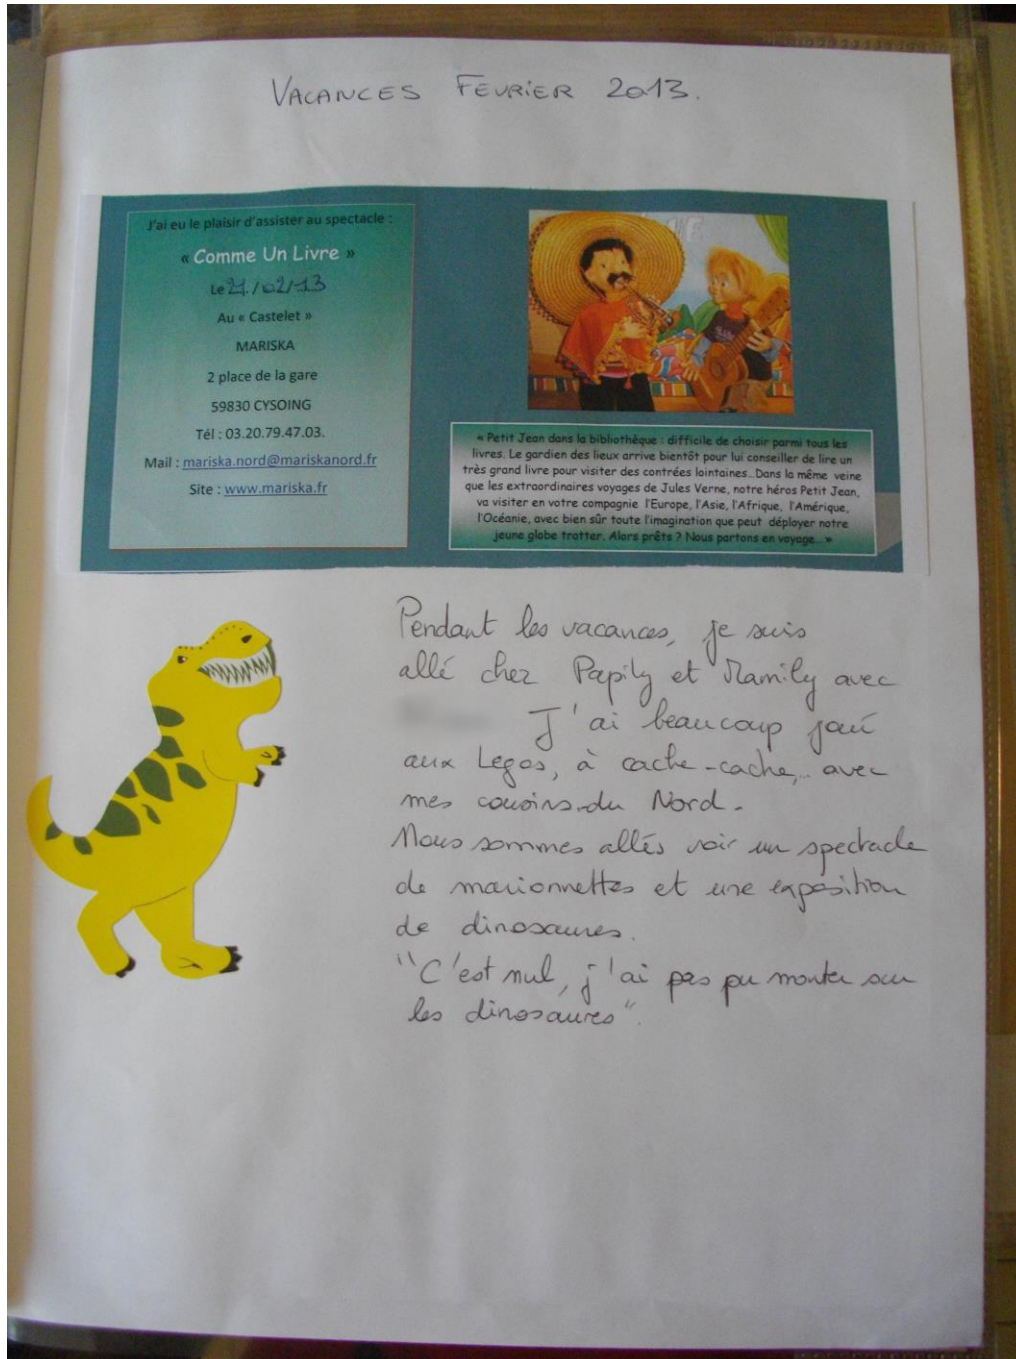 VACANCES FEVRIER 2013.
J'ai eu le plaisir d'assister au spectacle :
« Comme Un Livre »
Le 21/02/13
Au « Castelet »
MARISKA
2 place de la gare
59830 CYSOING
Tél : 03.20.79.47.03.
Mail : mariska.nord@mariskanord.fr
Site : www.mariska.fr
« Petit Jean dans la bibliothéque : difficile de choisir parmi tous les
livres. Le gardien des lieux arrive bientôt pour lui conseiller de lire un
très grand livre pour visiter des contrées lointaines...Dans la même veine
que les extraordinaires voyages de Jules Verne, notre héros Petit Jean,
va visiter en votre compagnie l'Europe, l'Asie, l'Afrique, l'Amérique,
l'Océanie, avec bien sûr toute l'imagination que peut déployer notre
jeune globe trotter. Alors prêts ? Nous partons en voyage... »
Pendant les vacances, je suis
allé chez Papily et Mamily avec
J'ai beaucoup joué
aux Legos, à cache-cache,... avec
mes cousins du Nord.
Nous sommes allés voir un spectacle
de marionnettes et une exposition
de dinosaures.
"C'est nul, j'ai pas pu monter sur
les dinosaures".